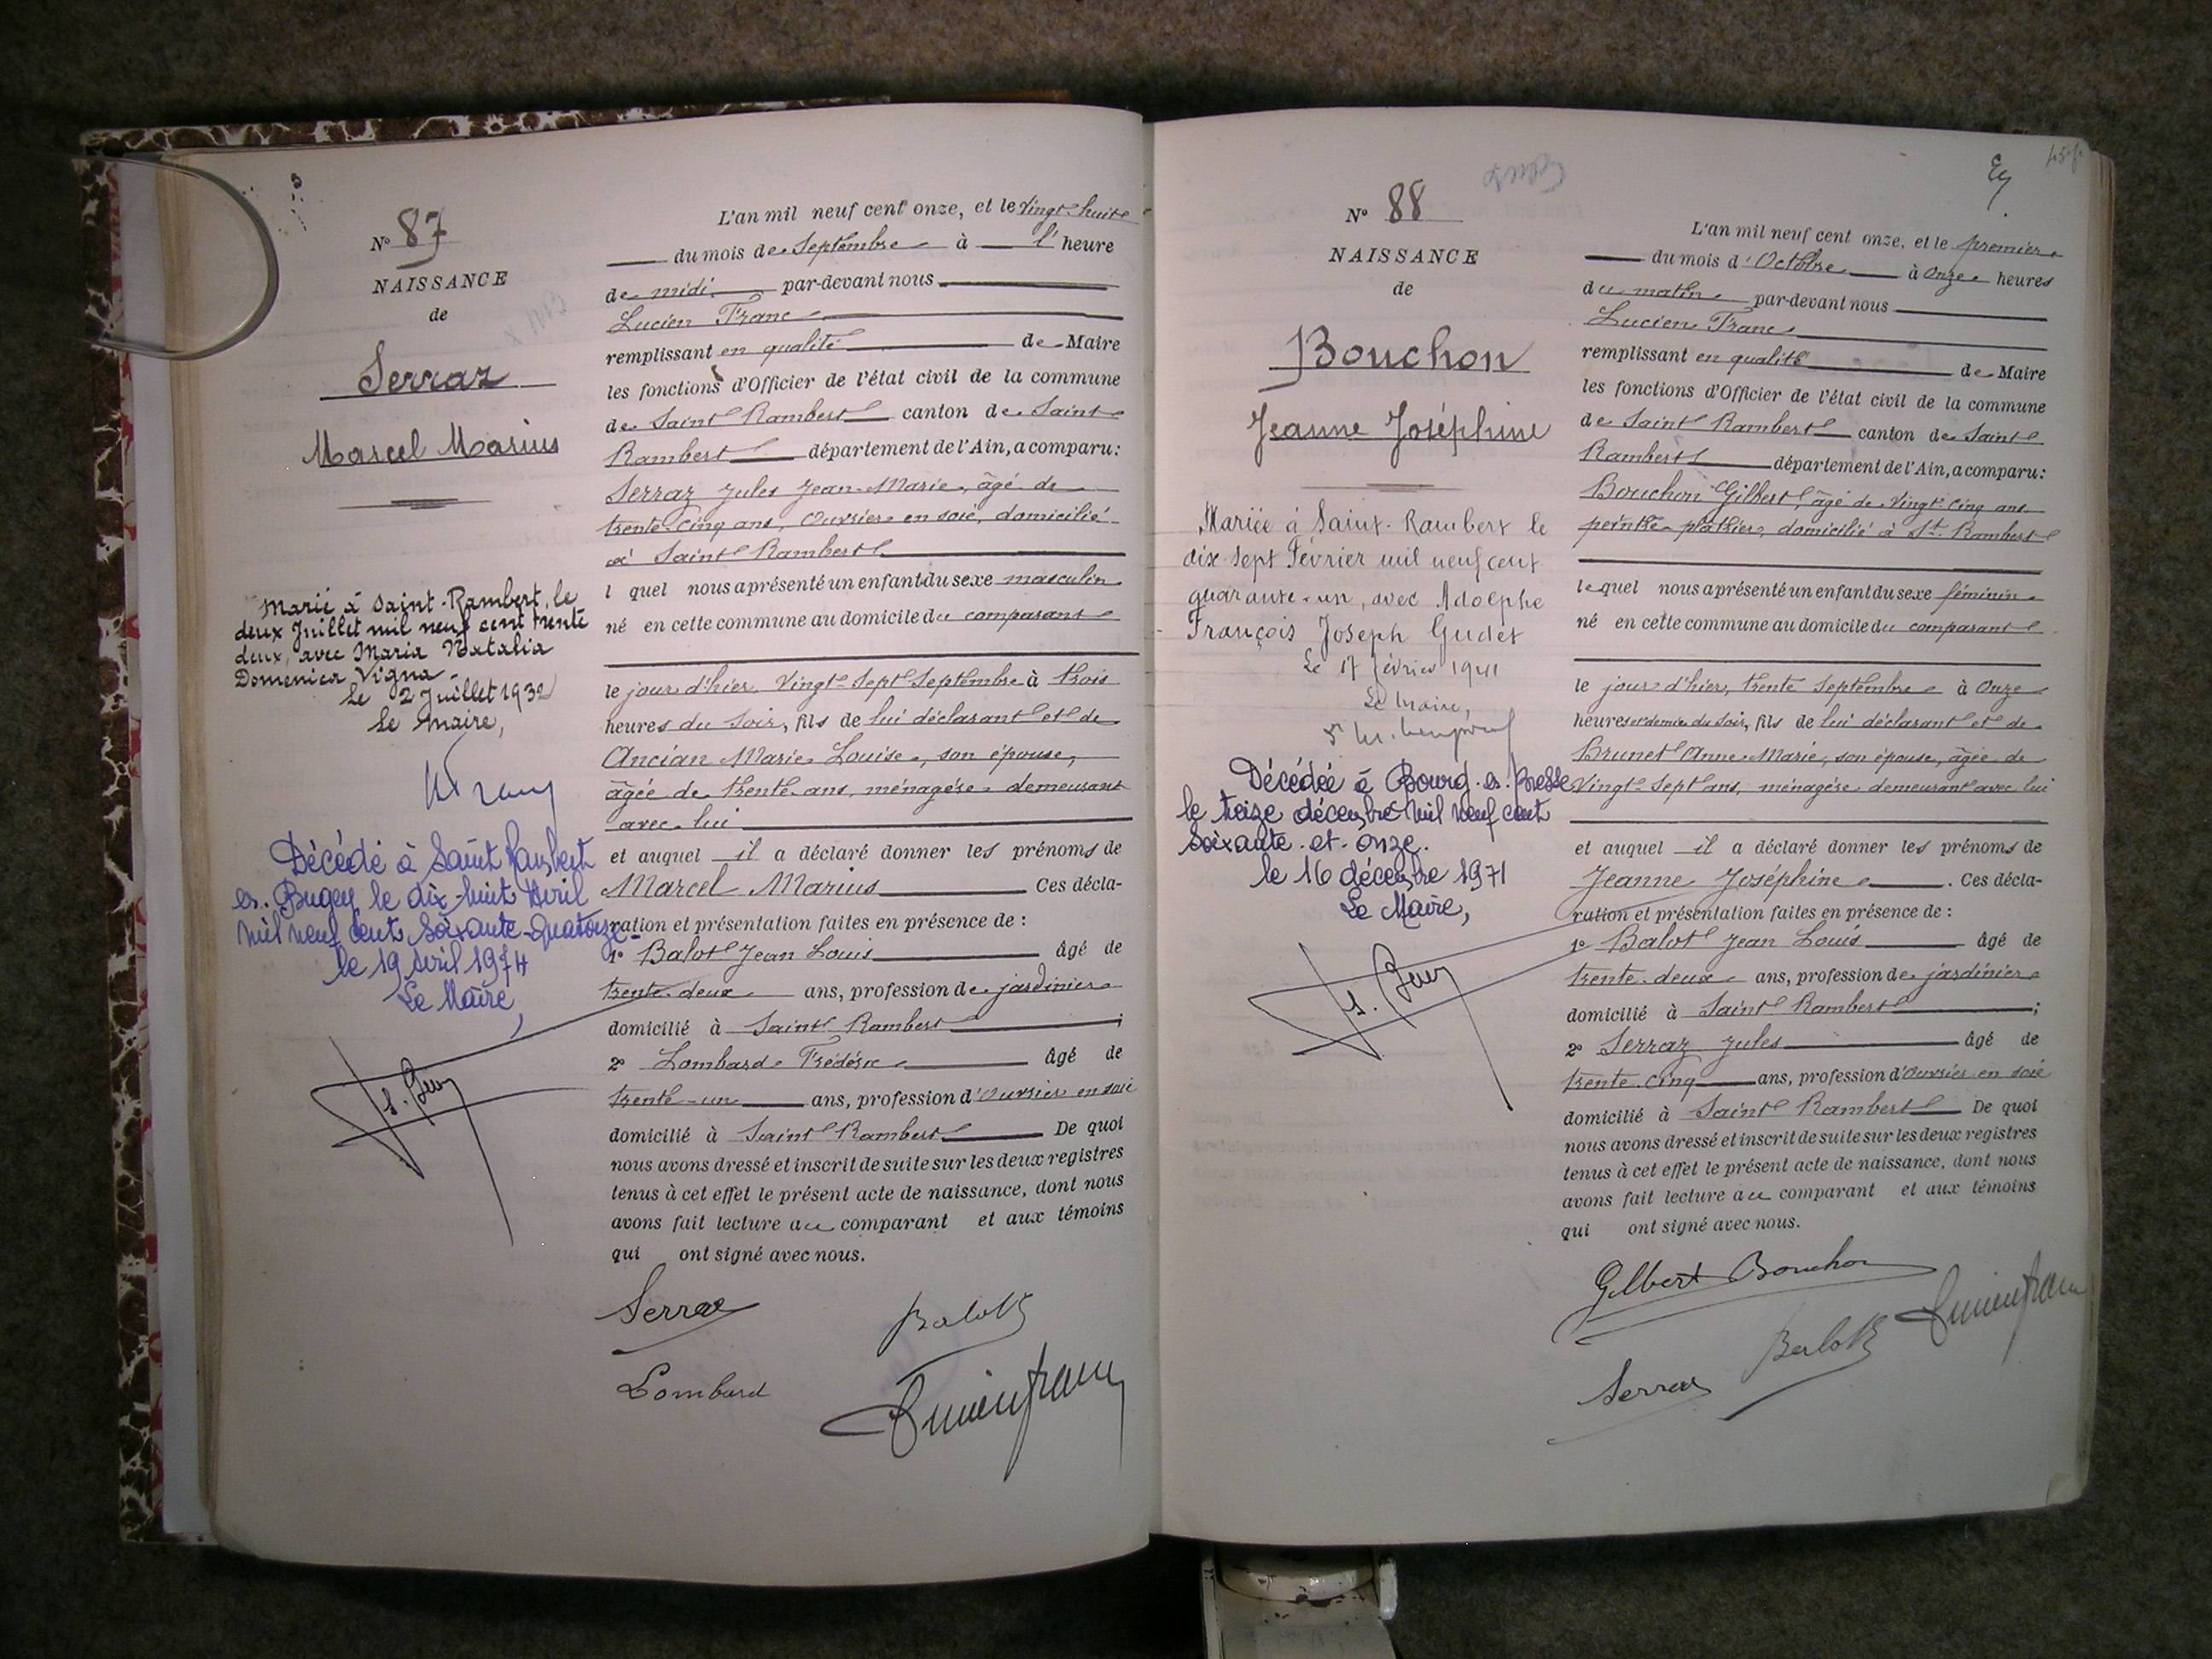 N° 87
NAISSANCE
de
Serraz
Marcel Marius
Marié à Saint-Rambert, le
deux Juillet mil neuf cent trente
deux, avec Maria Natalia
Domenica Vigna.
Le 2 Juillet 1932
Le Maire,
Décédé à Saint Rambert
en Bugey le dix-huit Avril
mil neuf cent soixante-quatorze.
le 19 Avril 1974
Le Maire,
L'an mil neuf cent onze, et le vingt-huit
du mois de Septembre à l'heure
de midi par-devant nous
Lucien Franc
remplissant en qualité de Maire
les fonctions d'Officier de l'état civil de la commune
de Saint Rambert canton de Saint
Rambert département de l'Ain, a comparu:
Serraz Jules Jean-Marie, âgé de
trente-cinq ans, ouvrier en soie, domicilié
à Saint Rambert
l quel nous a présenté un enfant du sexe masculin
né en cette commune au domicile du comparant
le jour d'hier, vingt-sept Septembre à trois
heures du soir, fils de lui déclarant et de
Ancian Marie Louise, son épouse,
âgée de trente ans, ménagère demeurant
avec lui
et auquel il a déclaré donner les prénoms de
Marcel Marius Ces décla-
ration et présentation faites en présence de :
1° Balot Jean Louis âgé de
trente-deux ans, profession de jardinier
domicilié à Saint Rambert ;
2° Lombard Frédéric âgé de
trente-un ans, profession d'ouvrier en soie
domicilié à Saint Rambert De quoi
nous avons dressé et inscrit de suite sur les deux registres
tenus à cet effet le présent acte de naissance, dont nous
avons fait lecture au comparant et aux témoins
qui ont signé avec nous.
Serraz Balot
Lombard Lucien Franc
N° 88
NAISSANCE
de
Bouchon
Jeanne Joséphine
Mariée à Saint-Rambert le
dix-sept Février mil neuf cent
quarante-un, avec Adolphe
François Joseph Gudet
Le 17 février 1941
Le Maire,
Décédée à Bourg-en-Bresse
le treize décembre mil neuf cent
soixante-et-onze.
le 16 décembre 1971
Le Maire,
L'an mil neuf cent onze, et le premier
du mois d'Octobre à onze heures
du matin par-devant nous
Lucien Franc
remplissant en qualité de Maire
les fonctions d'Officier de l'état civil de la commune
de Saint Rambert canton de Saint
Rambert département de l'Ain, a comparu:
Bouchon Gilbert, âgé de vingt-cinq ans
peintre-plâtrier, domicilié à St. Rambert
lequel nous a présenté un enfant du sexe féminin
né en cette commune au domicile du comparant
le jour d'hier, trente Septembre à onze
heures et demie du soir, fils de lui déclarant et de
Brunet Anne-Marie, son épouse, âgée de
vingt-sept ans, ménagère demeurant avec lui
et auquel il a déclaré donner les prénoms de
Jeanne Joséphine . Ces décla-
ration et présentation faites en présence de :
1° Balot Jean Louis âgé de
trente-deux ans, profession de jardinier
domicilié à Saint Rambert ;
2° Serraz Jules âgé de
trente-cinq ans, profession d'ouvrier en soie
domicilié à Saint Rambert De quoi
nous avons dressé et inscrit de suite sur les deux registres
tenus à cet effet le présent acte de naissance, dont nous
avons fait lecture au comparant et aux témoins
qui ont signé avec nous.
Gilbert Bouchon
Serraz Balot Lucien Franc